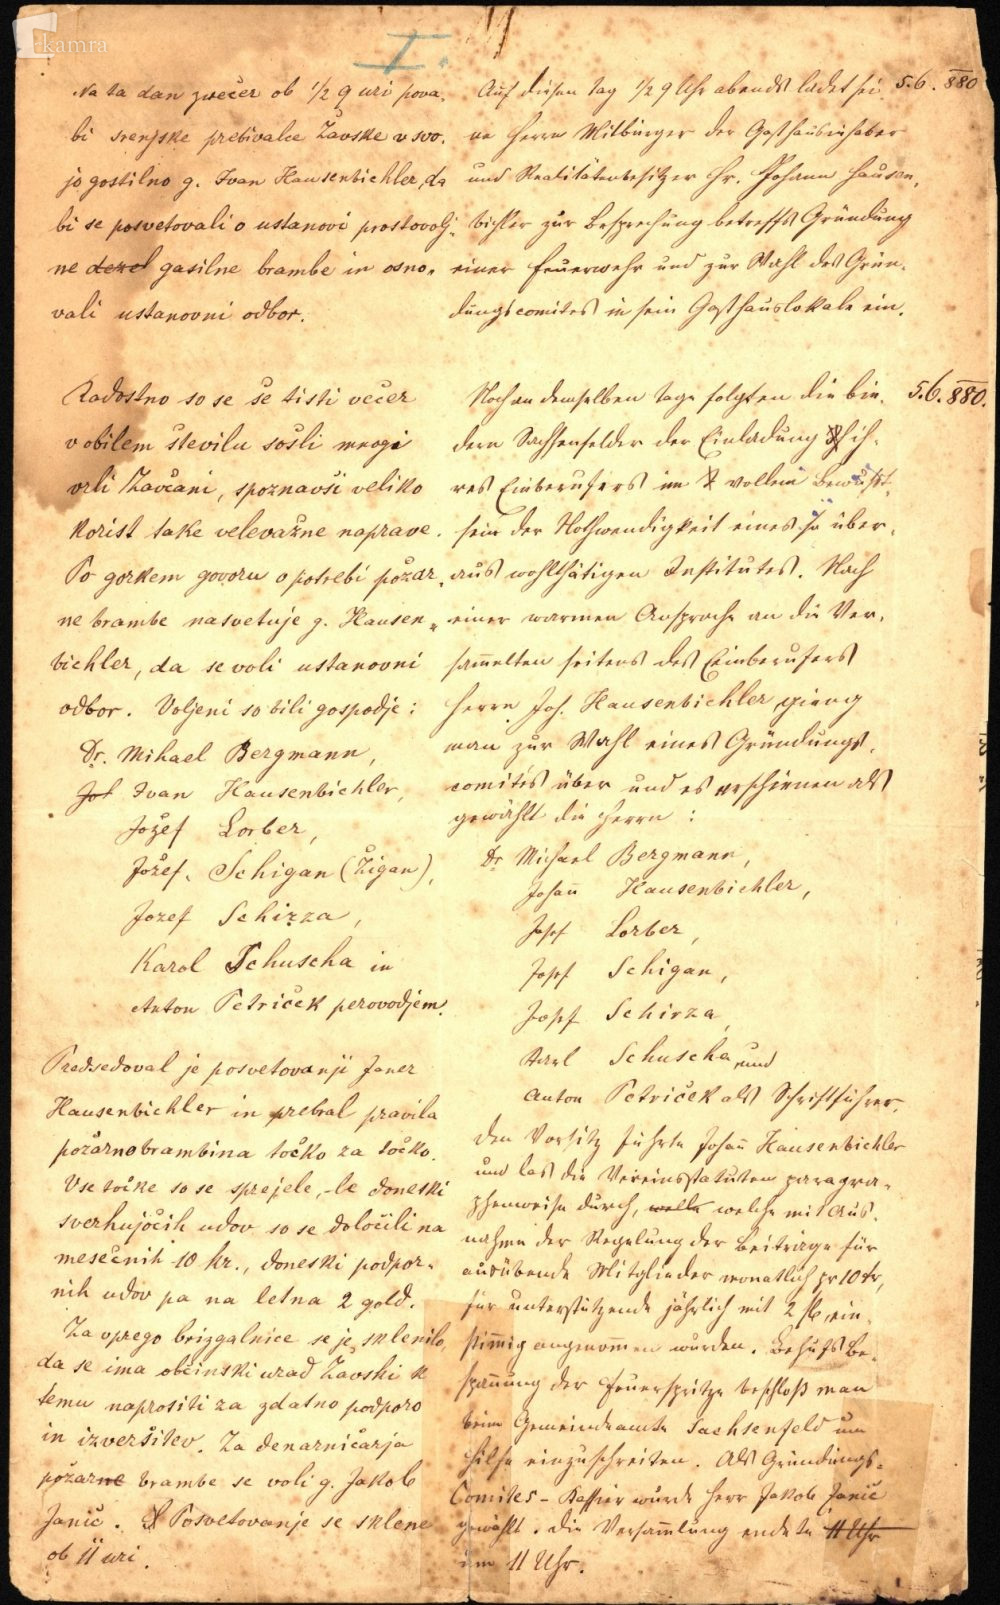 kamra
I.
Na ta dan zvečer ob 1/2 9 uri pova-
bi srenjske prebivalce Žavske v svo-
jo gostilno g. Ivan Hausenbichler, da
bi se posvetovali o ustanovi prostovolj-
ne dezel gasilne brambe in osno-
vali ustanovni odbor.
Radostno so se še tisti večer
v obilem številu sošli mnogi
vrli Žavčani, spoznavši veliko
korist take velevažne naprave.
Po gorkem govoru o potrebi požar-
ne brambe nasvetuje g. Hausen-
bichler, da se voli ustanovni
odbor. Voljeni so bili gospodje:
Dr. Mihael Bergmann,
Jos Ivan Hausenbichler,
Jožef Lorber,
Jožef Schigan (Žigan),
Jozef Schirza,
Karol Schuscha in
Anton Petriček perovodjem.
Predsedoval je posvetovanji Janez
Hausenbichler in prebral pravila
požarnobrambina točko za točko.
Vse točke so se sprejele, le doneski
sverhujočih udov so se določili na
mesečnih 10 kr., doneski podpor-
nih udov pa na letna 2 gold.
Za vprego brizgalnice se je sklenilo,
da se ima občinski urad Žavski k
temu naprositi za zdatno podporo
in izveršitev. Za denarničarja
požarne brambe se voli g. Jakob
Janič. Posvetovanje se sklene
ob 11 uri.
Auf diesen Tag 1/2 9 Uhr abends ladet sei- 5.6.880
ne Herrn Mitbürger der Gasthausinhaber
und Realitätenbesitzer Hr. Johann Hausen-
bichler zur Besprechung betreffs Gründung
einer Feuerwehr und zur Wahl des Grün-
dungscomites in sein Gasthauslokale ein.
Noch an demselben Tage folgten die bie- 5.6.880.
dern Sachsenfelder der Einladung ih-
res Einberufers im vollem Bewußt-
sein der Nothwendigkeit eines so über-
aus wohlthätigen Institutes. Nach
einer warmen Ansprache an die Ver-
sammelten seitens des Einberufers
Herrn Joh. Hausenbichler gieng
man zur Wahl eines Gründungs-
comités über und es erschienen als
gewählt die Herrn:
Dr Michael Bergmann,
Johann Hausenbichler,
Josef Lorber,
Josef Schigan,
Josef Schirza,
Karl Schuscha und
Anton Petriček als Schriftführer.
Den Vorsitz führte Johann Hausenbichler
und las die Vereinsstatuten paragra-
phenweise durch, welche welche mit Aus-
nahme der Regelung der Beiträge für
ausübende Mitglieder monatlich pr 10 kr,
für unterstützende jährlich mit 2 fl, ein-
stimmig angenommen wurden. Behufs Be-
spannung der Feuerspritze beschloß man
beim Gemeindeamte Sachsenfeld um
Hilfe einzuschreiten. Als Gründungs-
Comites-Kassier wurde Herr Jakob Janič
gewählt. Die Versammlung endete 11 Uhr
um 11 Uhr.